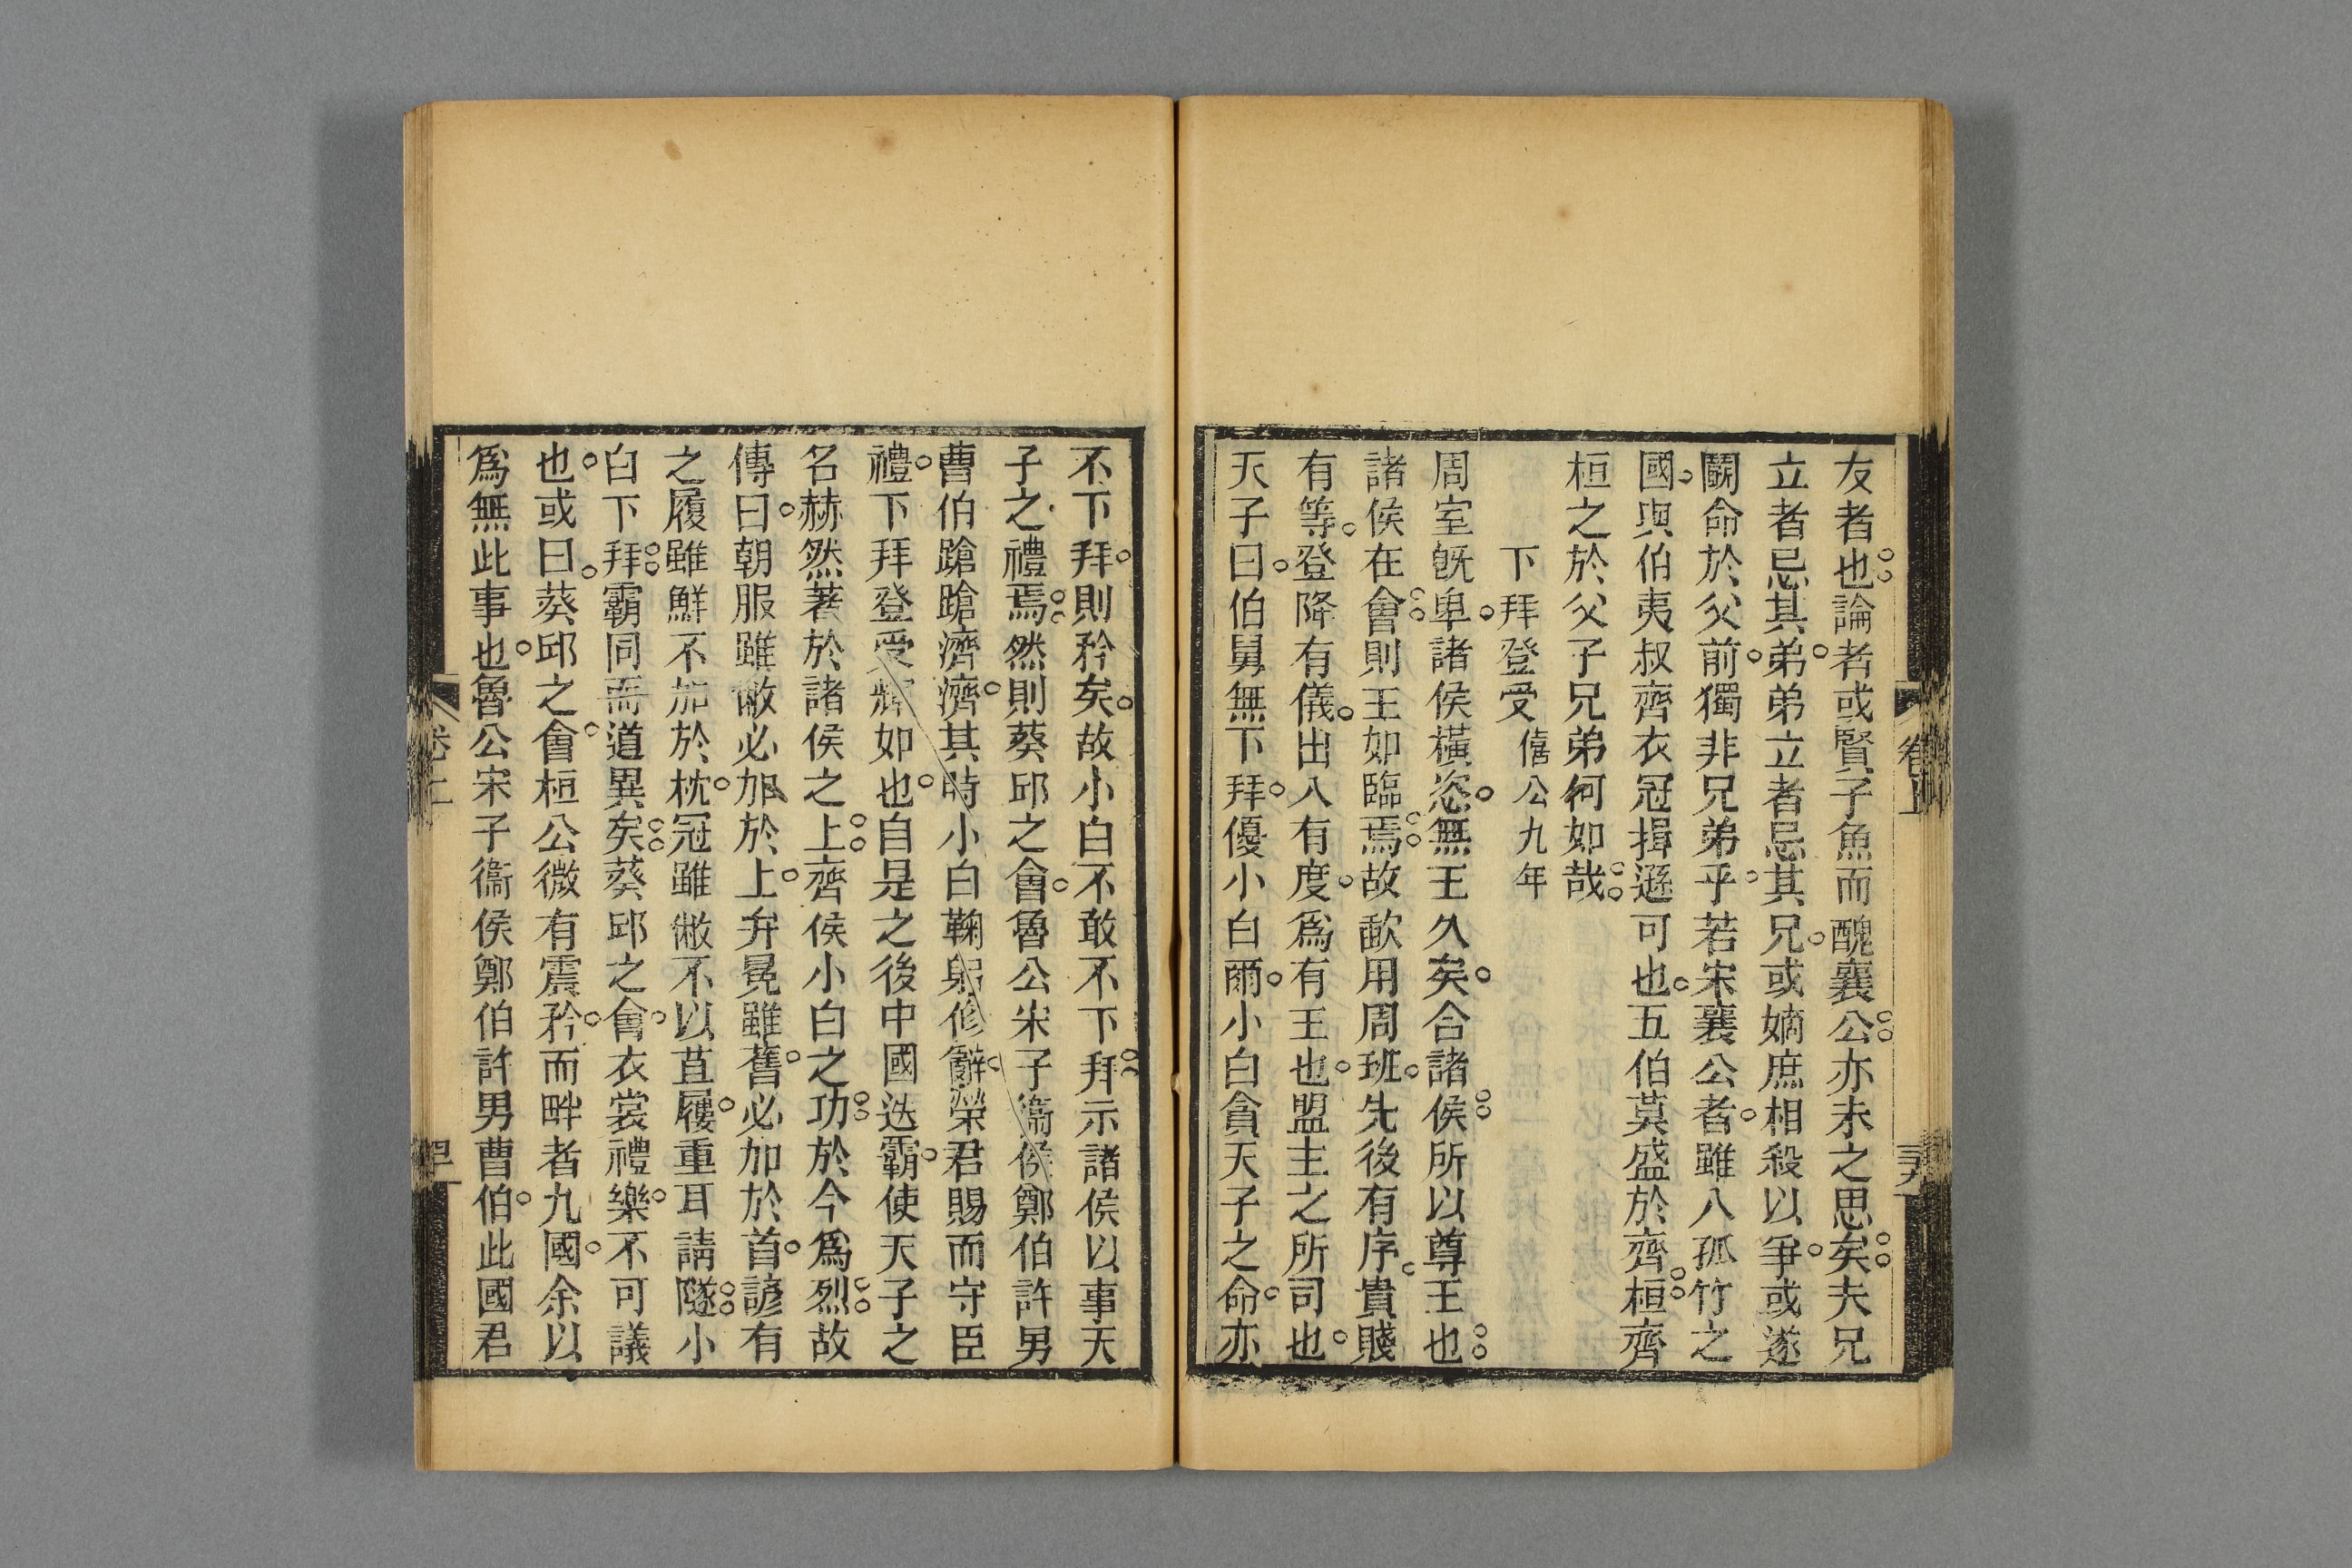 友者也論者或賢子魚而醜襄公亦未之思矣夫兄
立者忌其弟弟立者忌其兄或嫡庶相殺以爭或遂
鬭命於父前獨非兄弟乎若宋襄公者雖入孤竹之
國與伯夷叔齊衣冠揖遜可也五伯莫盛於齊桓齊
桓之於父子兄弟何如哉
下拜登受僖公九年
周室旣卑諸侯橫恣無王久矣合諸侯所以尊王也
諸侯在會則王如臨焉故歃用周班先後有序貴賤
有等登降有儀出入有度爲有王也盟主之所司也
天子曰伯舅無下拜優小白爾小白貪天子之命亦
不下拜則矜矣故小白不敢不下拜示諸侯以事天
子之禮焉然則葵邱之會魯公宋子衞侯鄭伯許男
曹伯蹌蹌濟濟其時小白鞠躬修辭榮君賜而守臣
禮下拜登受辭如也自是之後中國迭霸使天子之
名赫然著於諸侯之上齊侯小白之功於今爲烈故
傳曰朝服雖敝必加於上弁冕雖舊必加於首諺有
之履雖鮮不加於枕冠雖敝不以苴履重耳請隧小
白下拜霸同而道異矣葵邱之會衣裳禮樂不可議
也或曰葵邱之會桓公微有震矜而畔者九國余以
爲無此事也魯公宋子衞侯鄭伯許男曹伯此國君